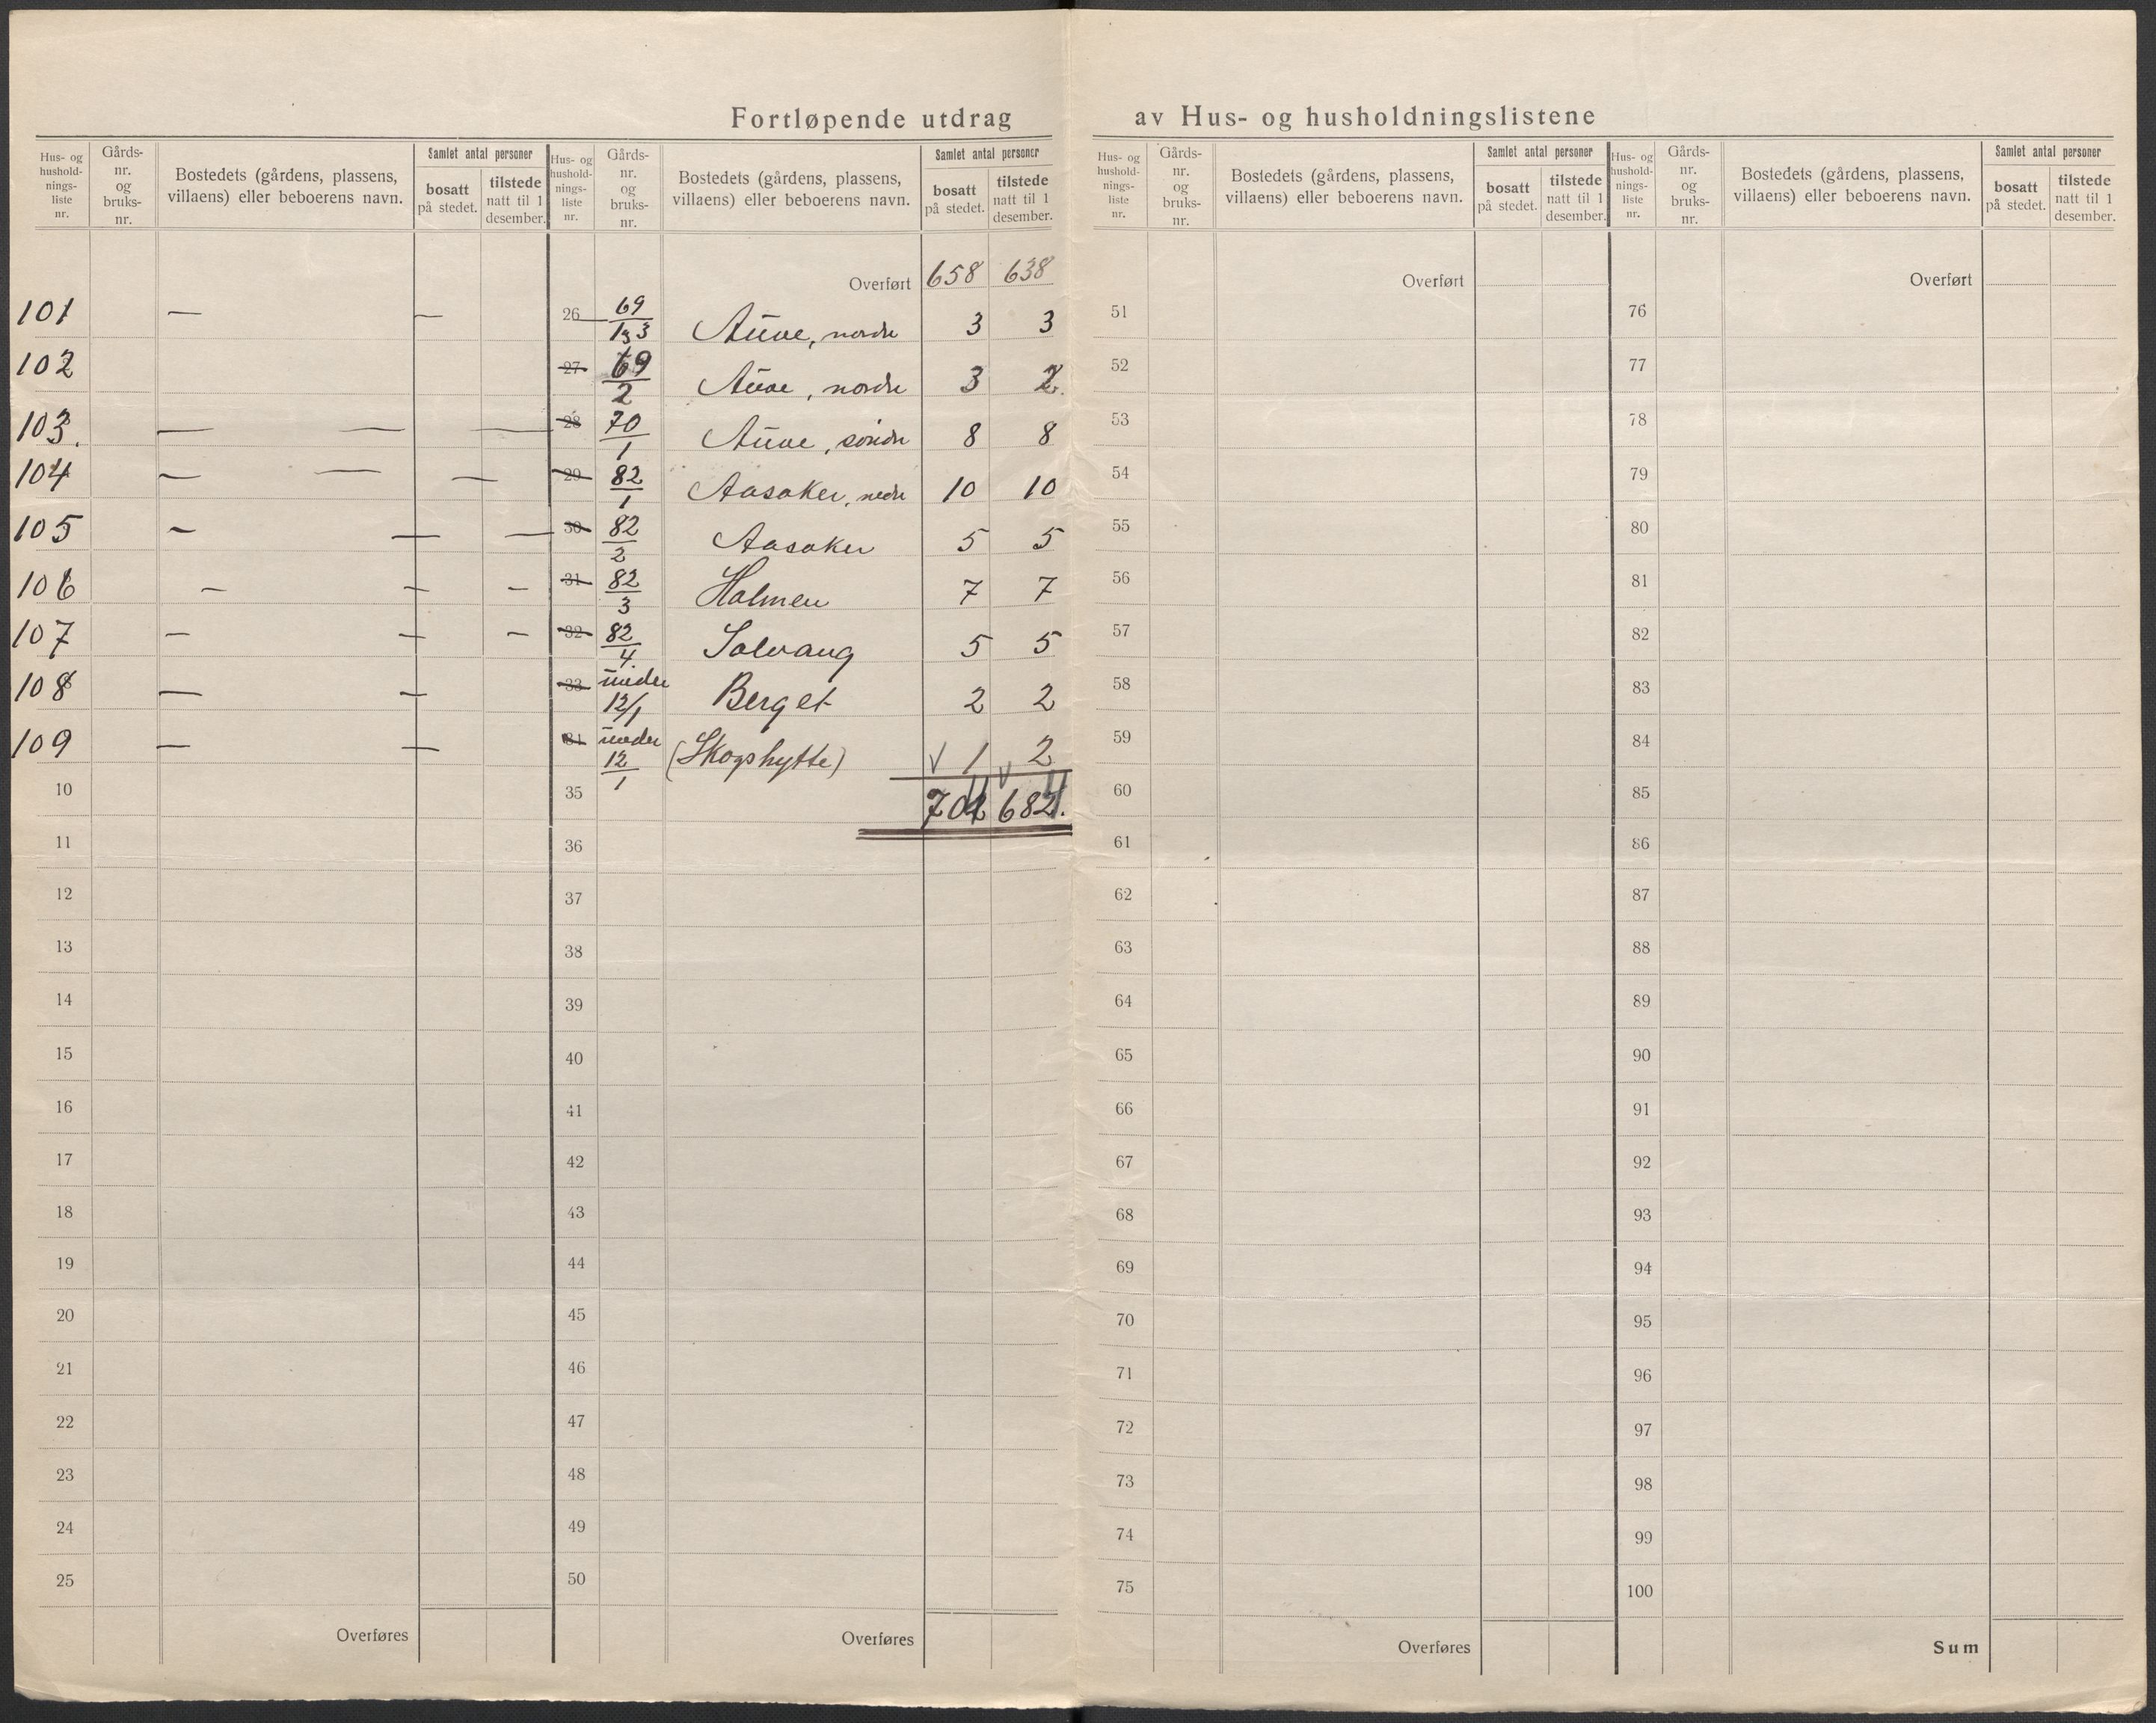 Fortløpende utdrag av Hus- og husholdningslistene
Hus- og hushold-nings-liste nr. Gårds-nr. og bruks-nr. Bostedets (gårdens, plassens, villaens) eller beboerens navn. Samlet antal personer bosatt på stedet. tilstede natt til 1 desember.
Hus- og hushold-nings-liste nr. Gårds-nr. og bruks-nr. Bostedets (gårdens, plassens, villaens) eller beboerens navn. Samlet antal personer bosatt på stedet. tilstede natt til 1 desember.
Hus- og hushold-nings-liste nr. Gårds-nr. og bruks-nr. Bostedets (gårdens, plassens, villaens) eller beboerens navn. Samlet antal personer bosatt på stedet. tilstede natt til 1 desember.
Hus- og hushold-nings-liste nr. Gårds-nr. og bruks-nr. Bostedets (gårdens, plassens, villaens) eller beboerens navn. Samlet antal personer bosatt på stedet. tilstede natt til 1 desember.
Overført 658 638 Overført Overført
101 — — 26 69/1,3 Auve, nordre 3 3 51 76
102 27 69/2 Auve, nordre 3 2. 52 77
103. — — — 28 70/1 Auve, søndre 8 8 53 78
104 — — — 29 82/1 Aasaker, nedre 10 10 54 79
105 — — — 30 82/2 Aasaker 5 5 55 80
106 — — — 31 82/3 Holmen 7 7 56 81
107 — — — 32 82/4. Solvang 5 5 57 82
108 — — 33 under 12/1 Berget 2 2 58 83
109 — — 34 under 12/1 (Skogshytte) √ 1 √ 2 59 84
10 35 704 684. 60 85
11 36 61 86
12 37 62 87
13 38 63 88
14 39 64 89
15 40 65 90
16 41 66 91
17 42 67 92
18 43 68 93
19 44 69 94
20 45 70 95
21 46 71 96
22 47 72 97
23 48 73 98
24 49 74 99
25 50 75 100
Overføres Overføres Overføres Sum